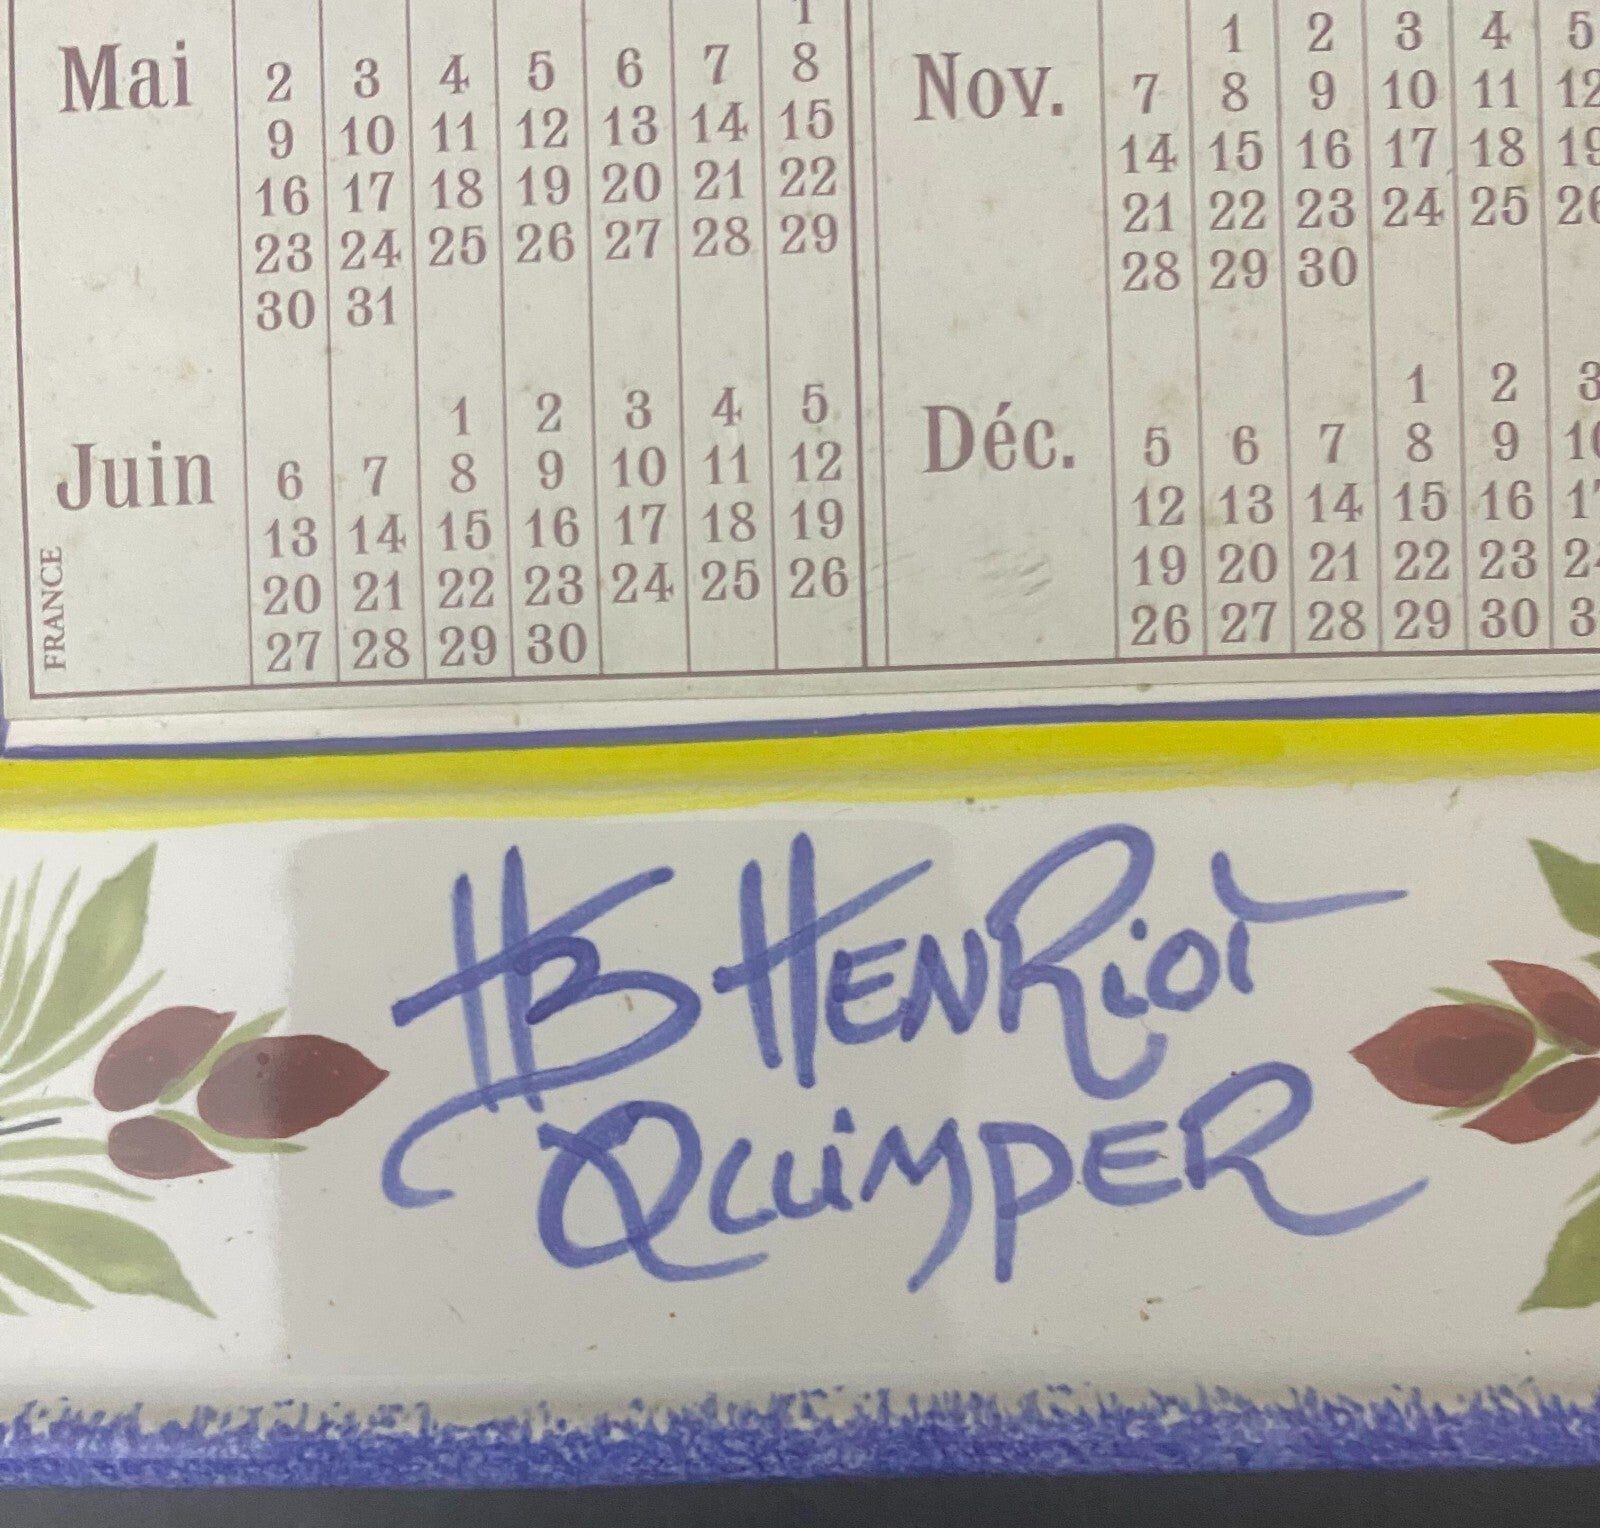 1
Mai 2 3 4 5 6 7 8
9 10 11 12 13 14 15
16 17 18 19 20 21 22
23 24 25 26 27 28 29
30 31
1 2 3 4 5
Juin 6 7 8 9 10 11 12
13 14 15 16 17 18 19
20 21 22 23 24 25 26
27 28 29 30
FRANCE
1 2 3 4 5
Nov. 7 8 9 10 11 12
14 15 16 17 18 19
21 22 23 24 25 26
28 29 30
1 2 3
Déc. 5 6 7 8 9 10
12 13 14 15 16 17
19 20 21 22 23
26 27 28 29 30
HB HENRIOT
QUIMPER